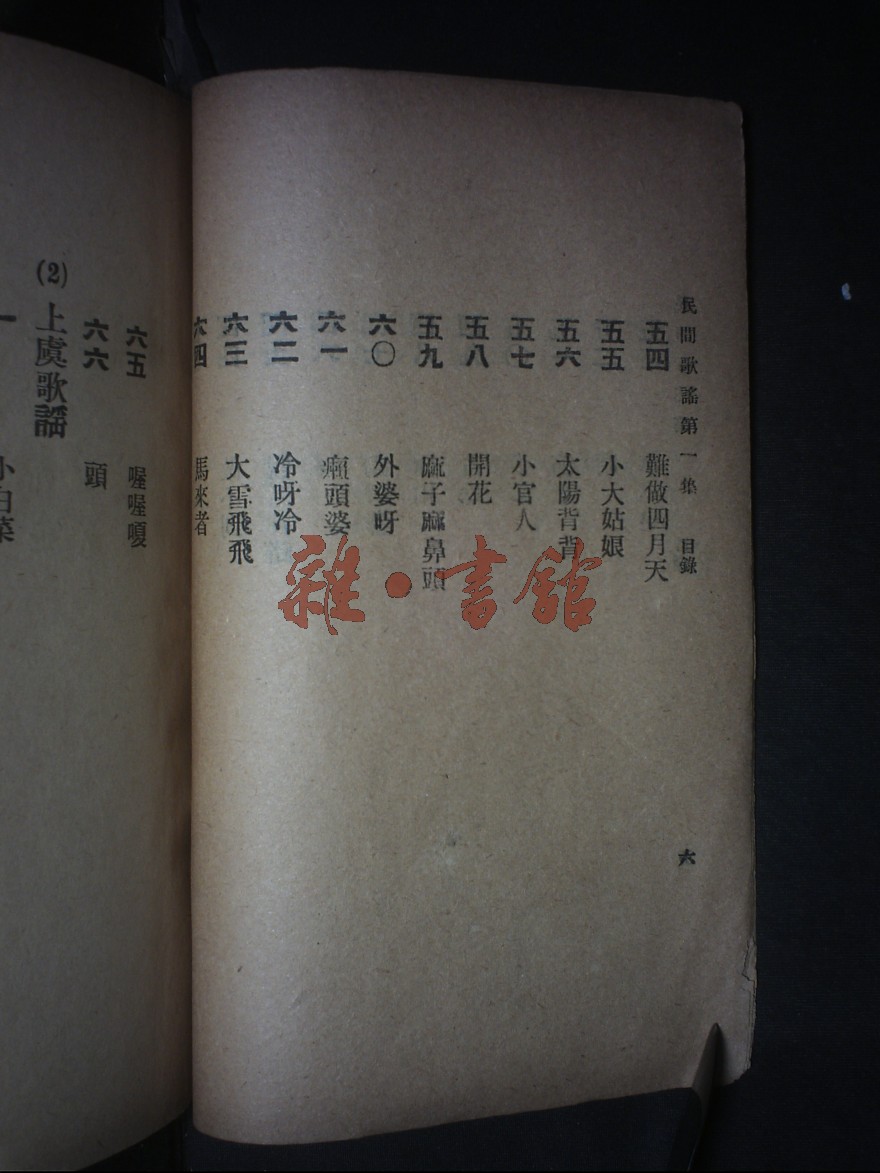 民間歌謠第一集 目錄 六
五四 難做四月天
五五 小大姑娘
五六 太陽背背
五七 小官人
五八 開花
五九 麻子麻鼻頭
六〇 外婆呀
六一 癩頭婆
六二 冷呀冷
六三 大雪飛飛
六四 馬來者
六五 喔喔嗄
六六 頭
(2) 上虞歌謠
一 小白菜
雜·書館